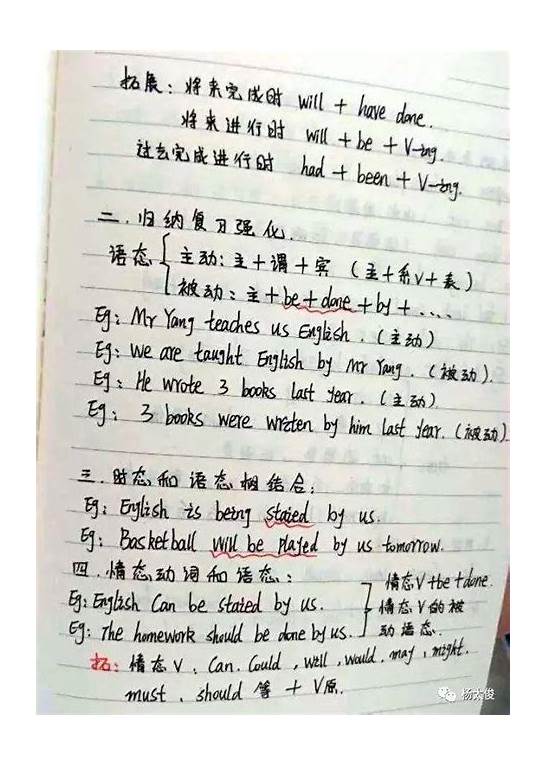 拓展：将来完成时 will + have done.
将来进行时 will + be + V-ing.
过去完成进行时 had + been + V-ing.
二．归纳复习强化．
语态 { 主动：主+谓+宾（主+系V+表）
被动：主+be+done+by+....
Eg: Mr Yang teaches us English.（主动）
Eg: We are taught English by Mr Yang.（被动）.
Eg: He wrote 3 books last year.（主动）
Eg: 3 books were wreten by him last year.（被动）
三．时态和语态相结合：
Eg: English is being stated by us.
Eg: Basketball will be played by us tomorrow.
四．情态动词和语态：
Eg: English Can be stated by us.
Eg: The homework should be done by us.
情态V+be+done.
情态V的被
动语态.
拓：情态V．Can. Could, will, would. may, might.
must. should 等 + V原.
杨大俊